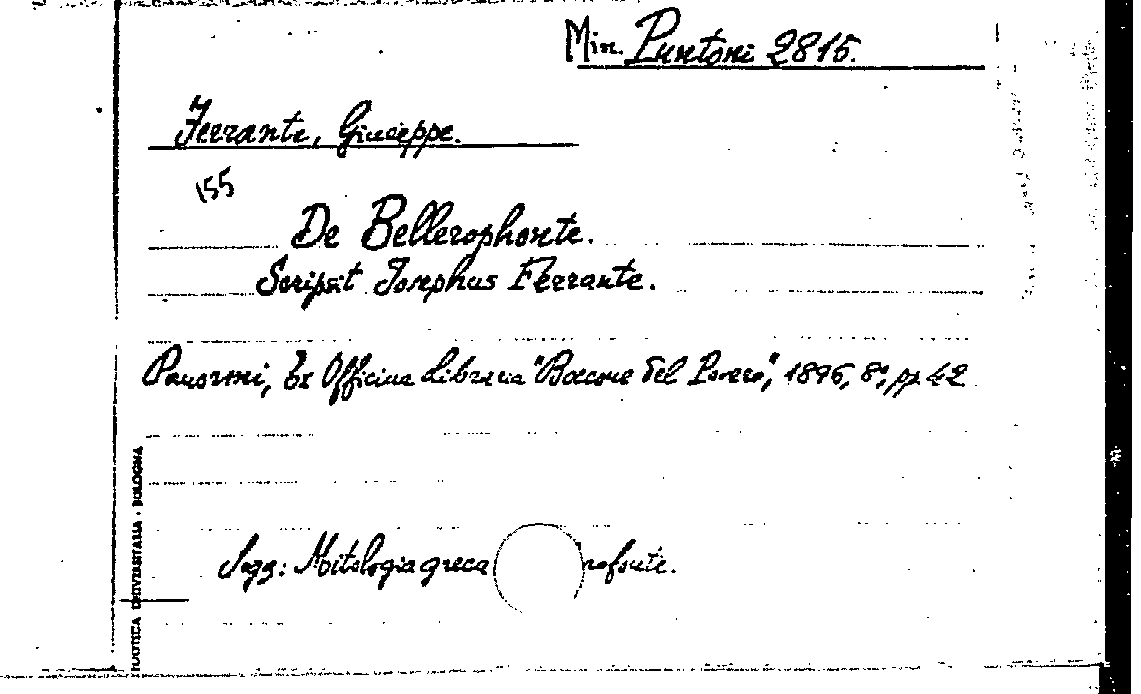 Min. Puntoni 2815.
Ferrante, Giuseppe.
155
De Bellerophonte.
Scripsit Josephus Ferrante.
Panormi, Ex Officina Libraria "Boccone del Povero", 1896, 8°, pp. 42
Sogg: Mitologia greca rofonte.
UNIVERSITALIA - BOLOGNA